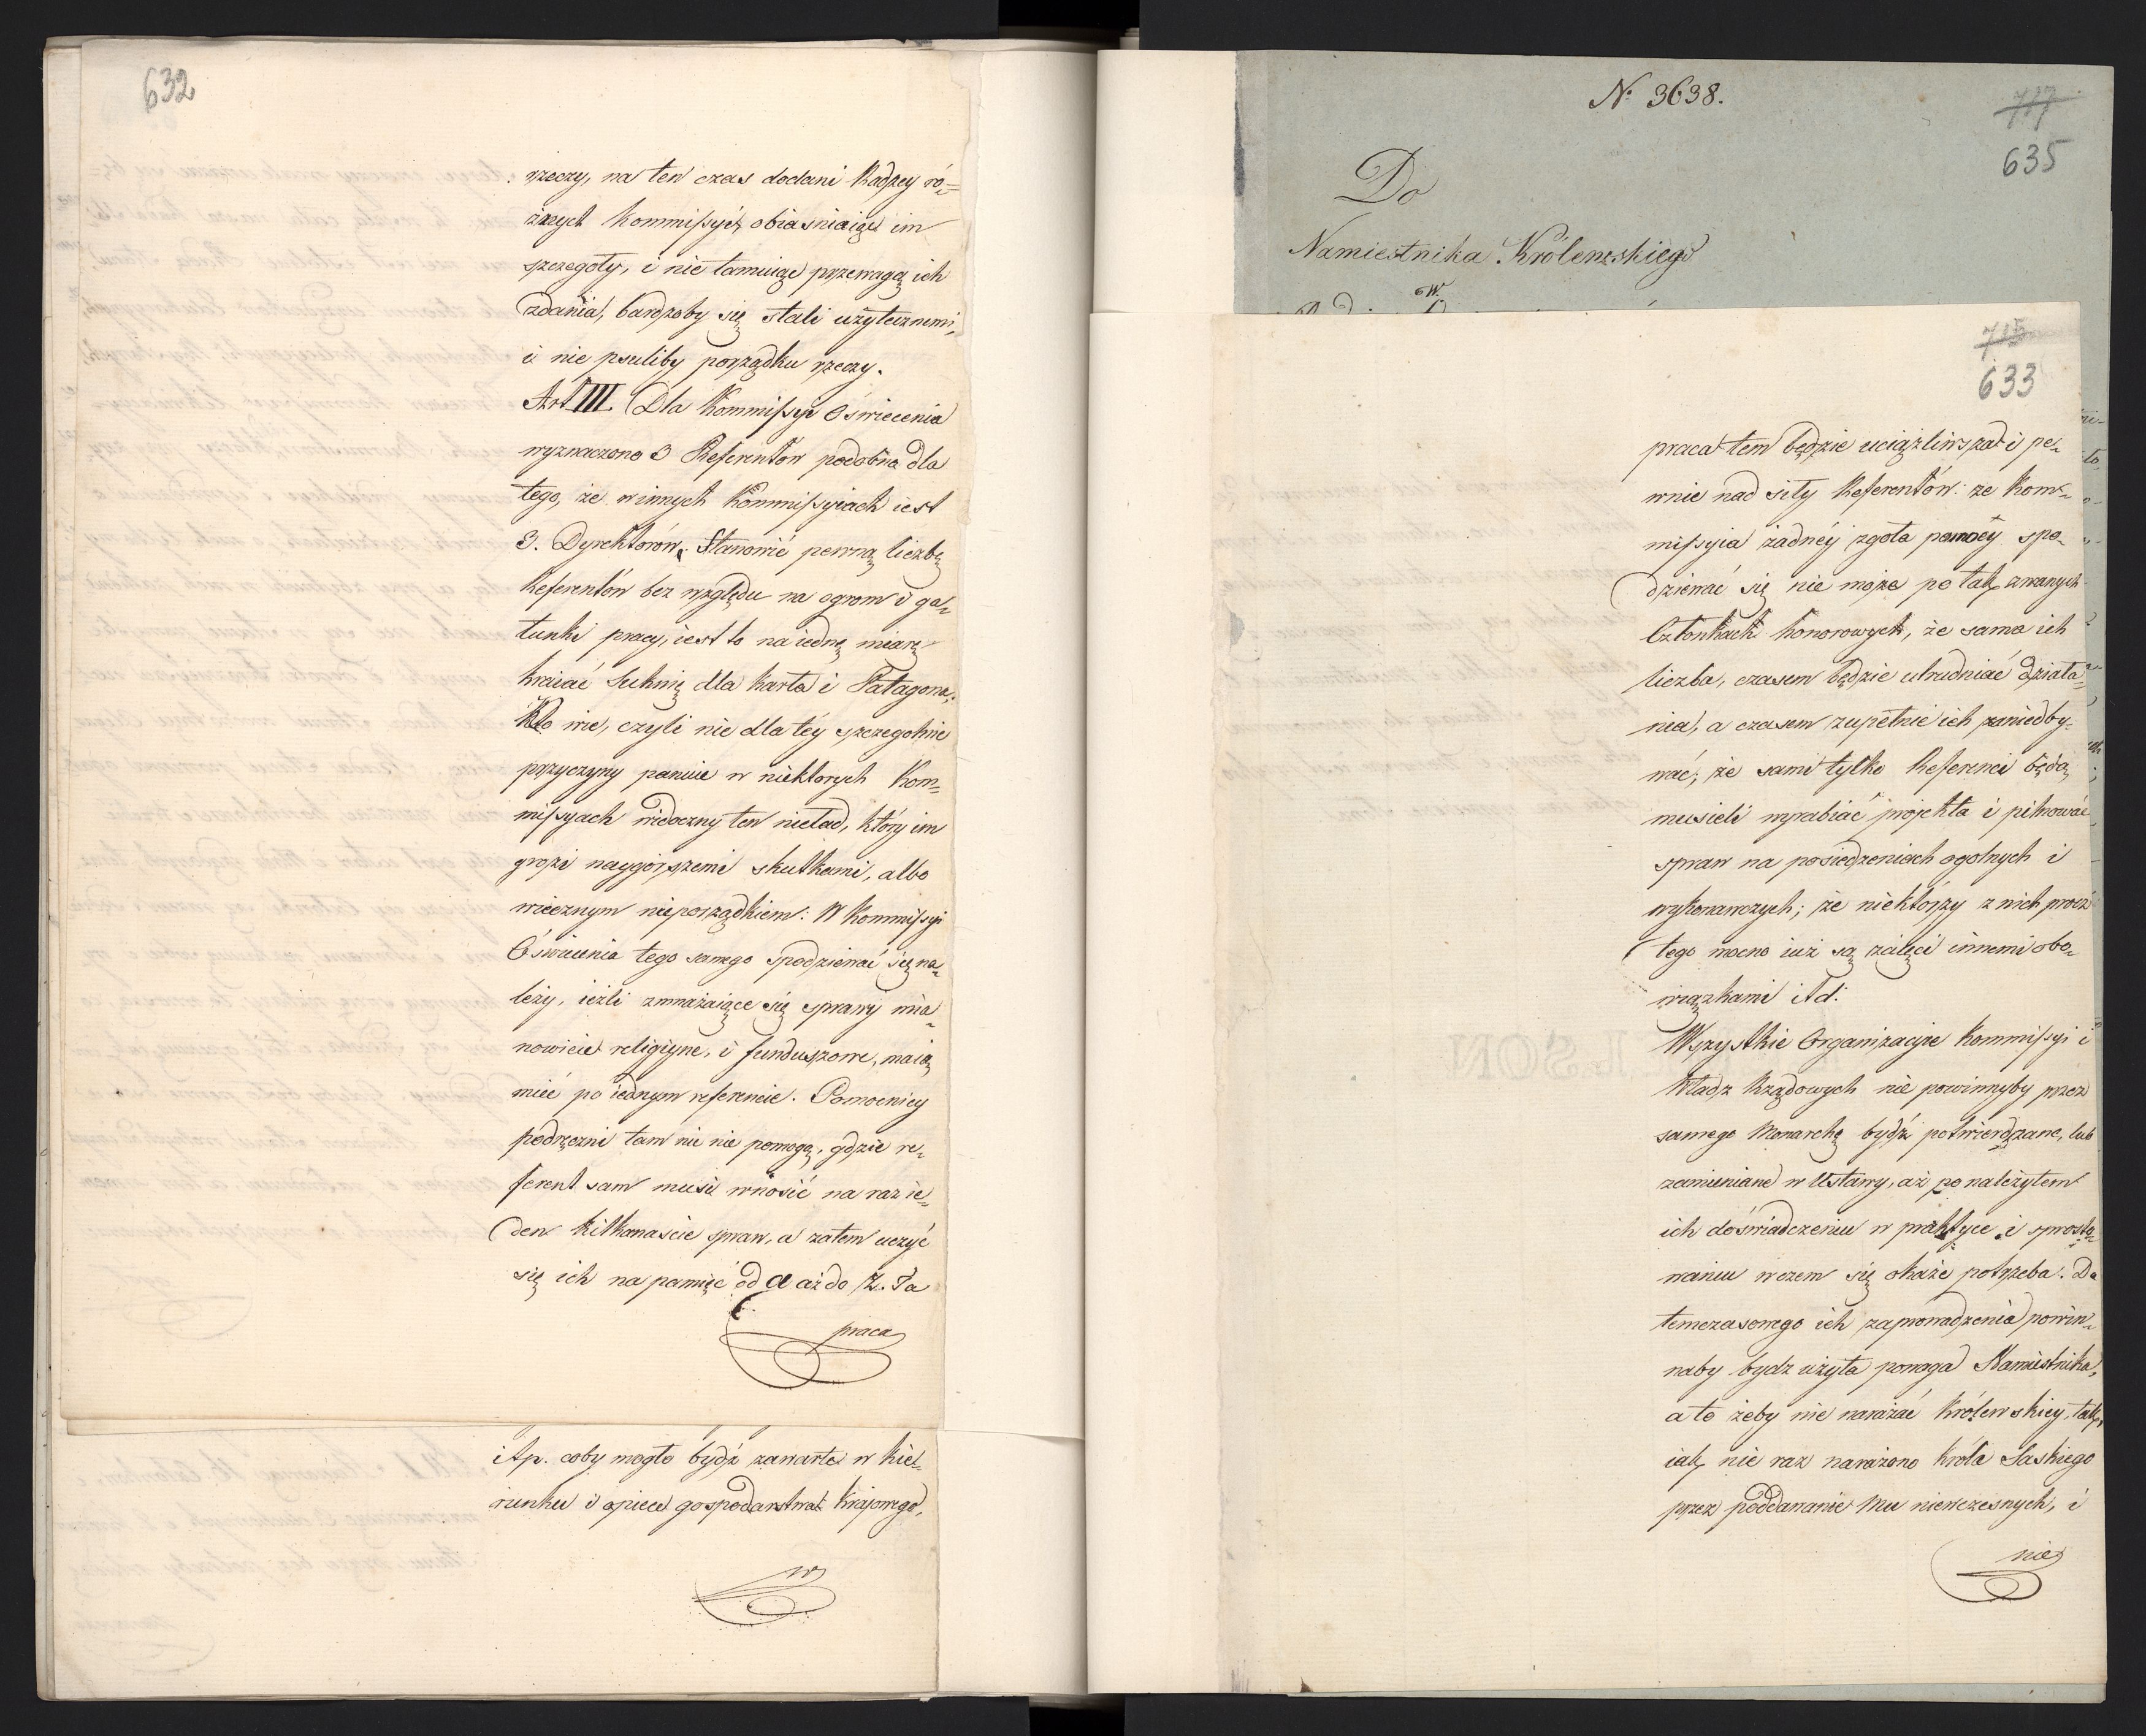 632
rzeczy, na ten czas dodani Radzcy ró=
żnych Kommissyi, obiasniaiąc im
szczegoły, i nie tamuiąc przewagą ich
zdania, bardzoby się stali użytecznemi,
i nie psuliby porządku rzeczy.
Art III. Dla Kommissyi Oświecenia
wyznaczono 3 Referentów podobno dla
tego, że w innych Kommissyiach iest
3. Dyrektorów. Stanowić pewną liczbę
Referentów bez względu na ogrom i ga„
tunki pracy, iest to na iedną miarę
kraiać Suknię dla Karła i Patagona.
Kto wie, czyli nie dla téy szczegolnie
przyczyny panuie w niektorych Kom„
missyach widoczny ten nieład, który im
grozi naygorszemi skutkami, albo
wiecznym nieporządkiem: W Kommissyi
Oświecenia tego samego spodziewać się na„
leży, ieżli zmnażaiące się sprawy mia„
nowicie religiyne, i funduszowe, maią
mieć po iednym referencie. Pomocnicy
podręczni tam nic nie pomogą, gdzie re„
ferent sam musi wnosić na raz ie„
den kilkanaście spraw, a zatem uczyć
się ich na pamięć od a aż do Z. Ta
praca
i t p. coby mogło bydź zawarte w kie„
runku i opiece gospodarstwa Krajowego,
w
N: 3638.
717
635
Do
Namiestnika Królewskiego
W.
715
633
praca tem będzie uciążliwszą i pe„
wnie nad siły Referentów: że Kom„
missyia żadnéy zgoła pomocy spo„
dziewać się nie może po tak zwanych
Członkach honorowych, że sama ich
liczba, czasem będzie utrudniać działa„
nia, a czasem zupełnie ich zaniedby„
wać; że sami tylko Referenci będą
musieli wyrabiać projekta i pilnować
spraw na posiedzeniach ogolnych i
wykonawczych; że niektórzy z nich procz
tego mocno iuż są zaięci innemi obo„
wiązkami i t d:
Wszystkie Organizacyie Kommissyi i
Władz Rządowych nie powinnyby przez
samego Monarchę bydź potwierdzane, lub
zamieniane w Ustawy, aż po należytem
ich doświadczeniu w praktyce i sprosto„
waniu w czem się okaże potrzeba. Do
temczasowego ich zaprowadzenia powin„
naby bydz użyta powaga Namiestnika,
a to żeby nie narażać Królewskiey, tak,
iak nie raz narażono Króla Saskiego
przez poddawanie Mu niewczesnych, i
nie